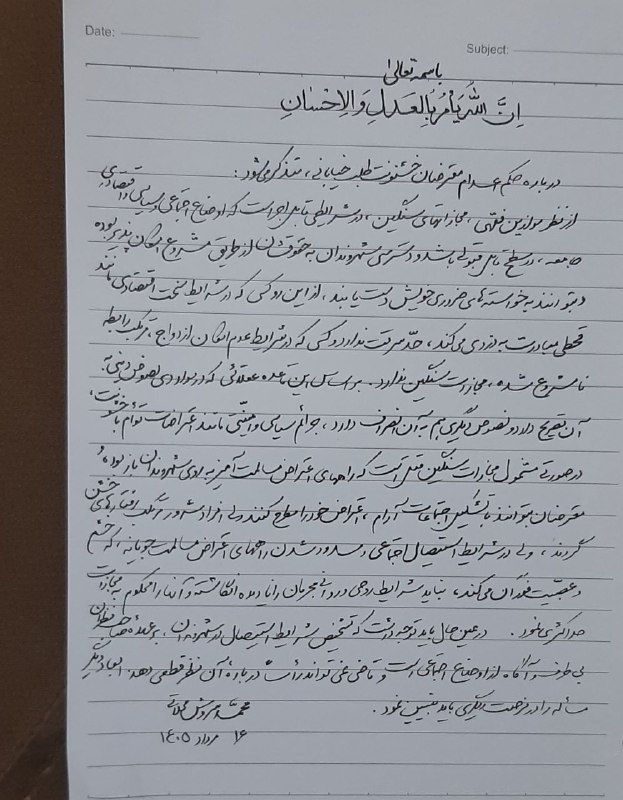 Date:
Subject:
باسمه تعالی
اِنَّ اللّهَ یَأمُرُ بِالعَدلِ وَ الاِحسٰانِ
درباره حکم اعدام معترضان خشونت طلب خیابانی، متذکر می‌شود:
از نظر موازین فقهی، مجازاتهای سنگین، در شرایطی قابل اجراست که اوضاع اجتماعی و سیاسی و اقتصادی
جامعه، در سطح قابل قبولی باشد و دسترسی شهروندان به حقوقشان از طریق مشروع امکان پذیر بوده
و بتوانند به خواسته‌های ضروری خویش دست یابند، از این رو کسی که در شرایط سخت اقتصادی مانند
قحطی مبادرت به دزدی می‌کند، حدّ سرقت ندارد و کسی که در شرایط عدم امکان ازدواج، مرتکب رابطه
نامشروع شده، مجازات سنگین ندارد. بر اساس این قاعده عقلائی که در مواردی نصوص دینی به
آن تصریح دارد و نصوص دیگری هم به آن انصراف دارد، جرائم سیاسی و امنیّتی مانند اعتراضات توأم با خشونت،
در صورتی مشمول مجازات سنگین قتل است که راههای اعتراض مسالمت آمیز به روی شهروندان باز بوده و
معترضان بتوانند با تشکیل اجتماعات آرام، اعتراض خود را مطرح کنند ولی افراد شرور مرتکب رفتارهای خشن
گردند، ولی در شرایط استیصال اجتماعی و مسدود شدن راههای اعتراض مسالمت جویانه، که خشم
و عصبیت فوران می‌کند، نباید شرایط روحی و روانی مجرمان را نادیده انگاشته و آنها را محکوم به مجازات
حداکثری نمود. در عین حال باید توجه داشت که تشخیص شرایط استیصال در شهروندان، بر عهده صاحبنظران
بی طرف و آگاه از اوضاع اجتماعی است و قاضی نمی‌تواند رأساً درباره آن نظر قطعی دهد. ابعاد دیگر
مسأله را در فرصت دیگری باید تبیین نمود.
محمّد سروش محلاتی
۱۶ مرداد ۱۴۰۵